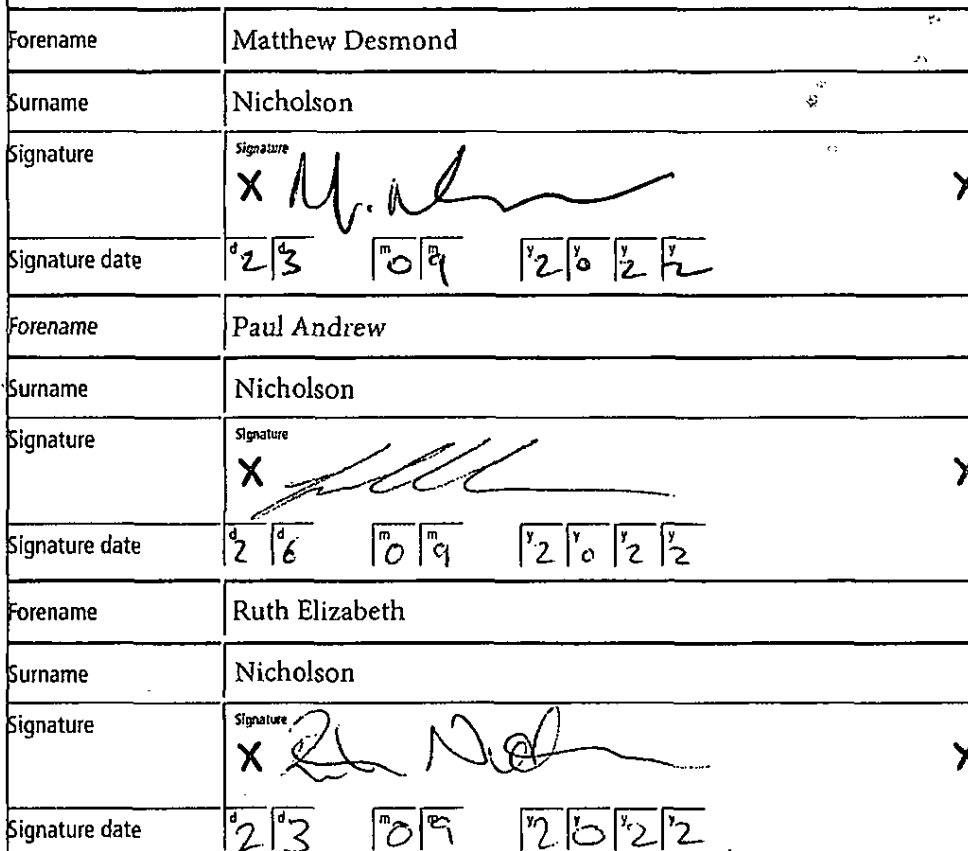 Forename Matthew Desmond
Surname Nicholson
Signature Signature
X M. N X
Signature date d2 d3 m0 m9 y2 y0 y2 y2
Forename Paul Andrew
Surname Nicholson
Signature Signature
X X
Signature date d2 d6 m0 m9 y2 y0 y2 y2
Forename Ruth Elizabeth
Surname Nicholson
Signature Signature
X Ruth Nicholson X
Signature date d2 d3 m0 m9 y2 y0 y2 y2